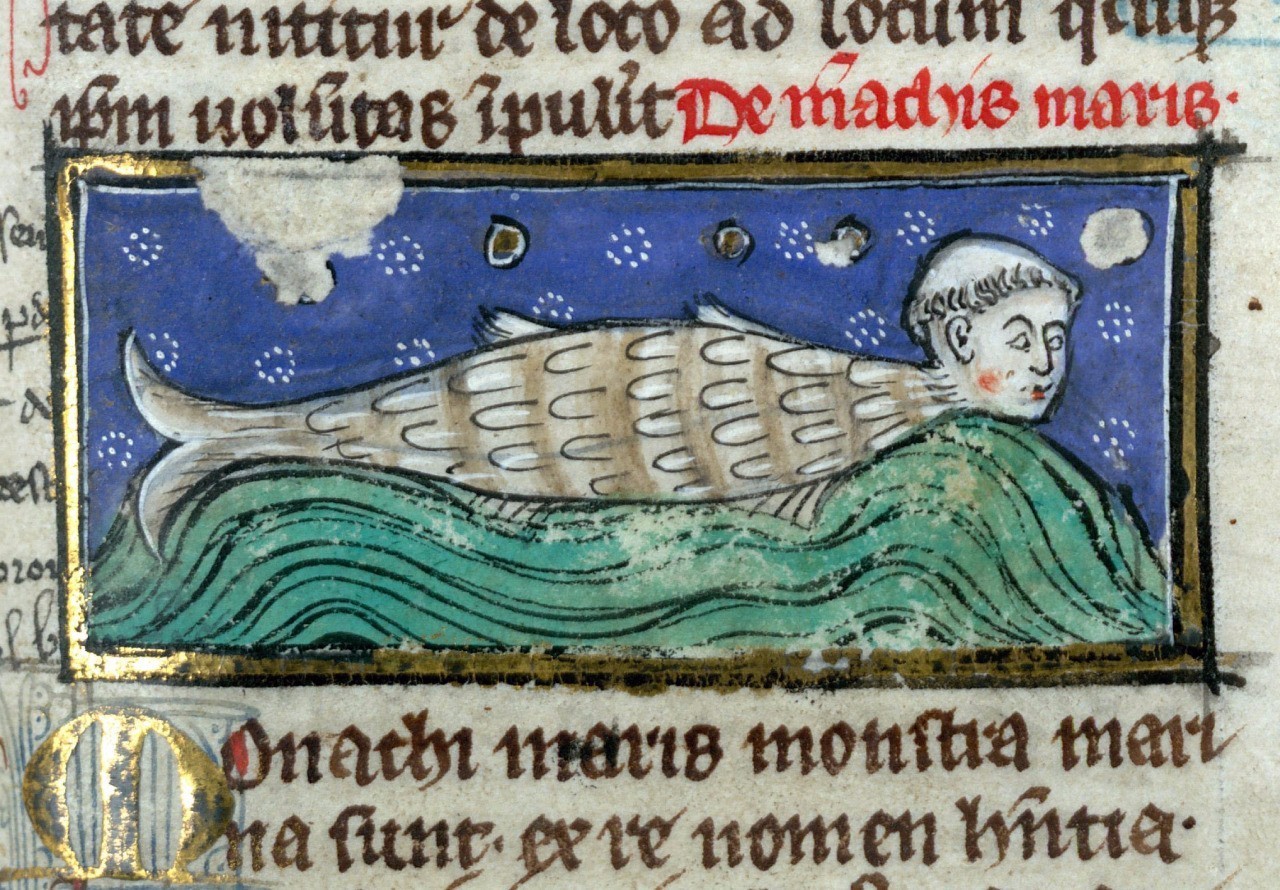 tate nititur de loco ad locum
ip̄m uolūtas īpulit De m̄achis maris.
Monachi maris monstra mari
na sunt. ex re nomen hn̄tia.